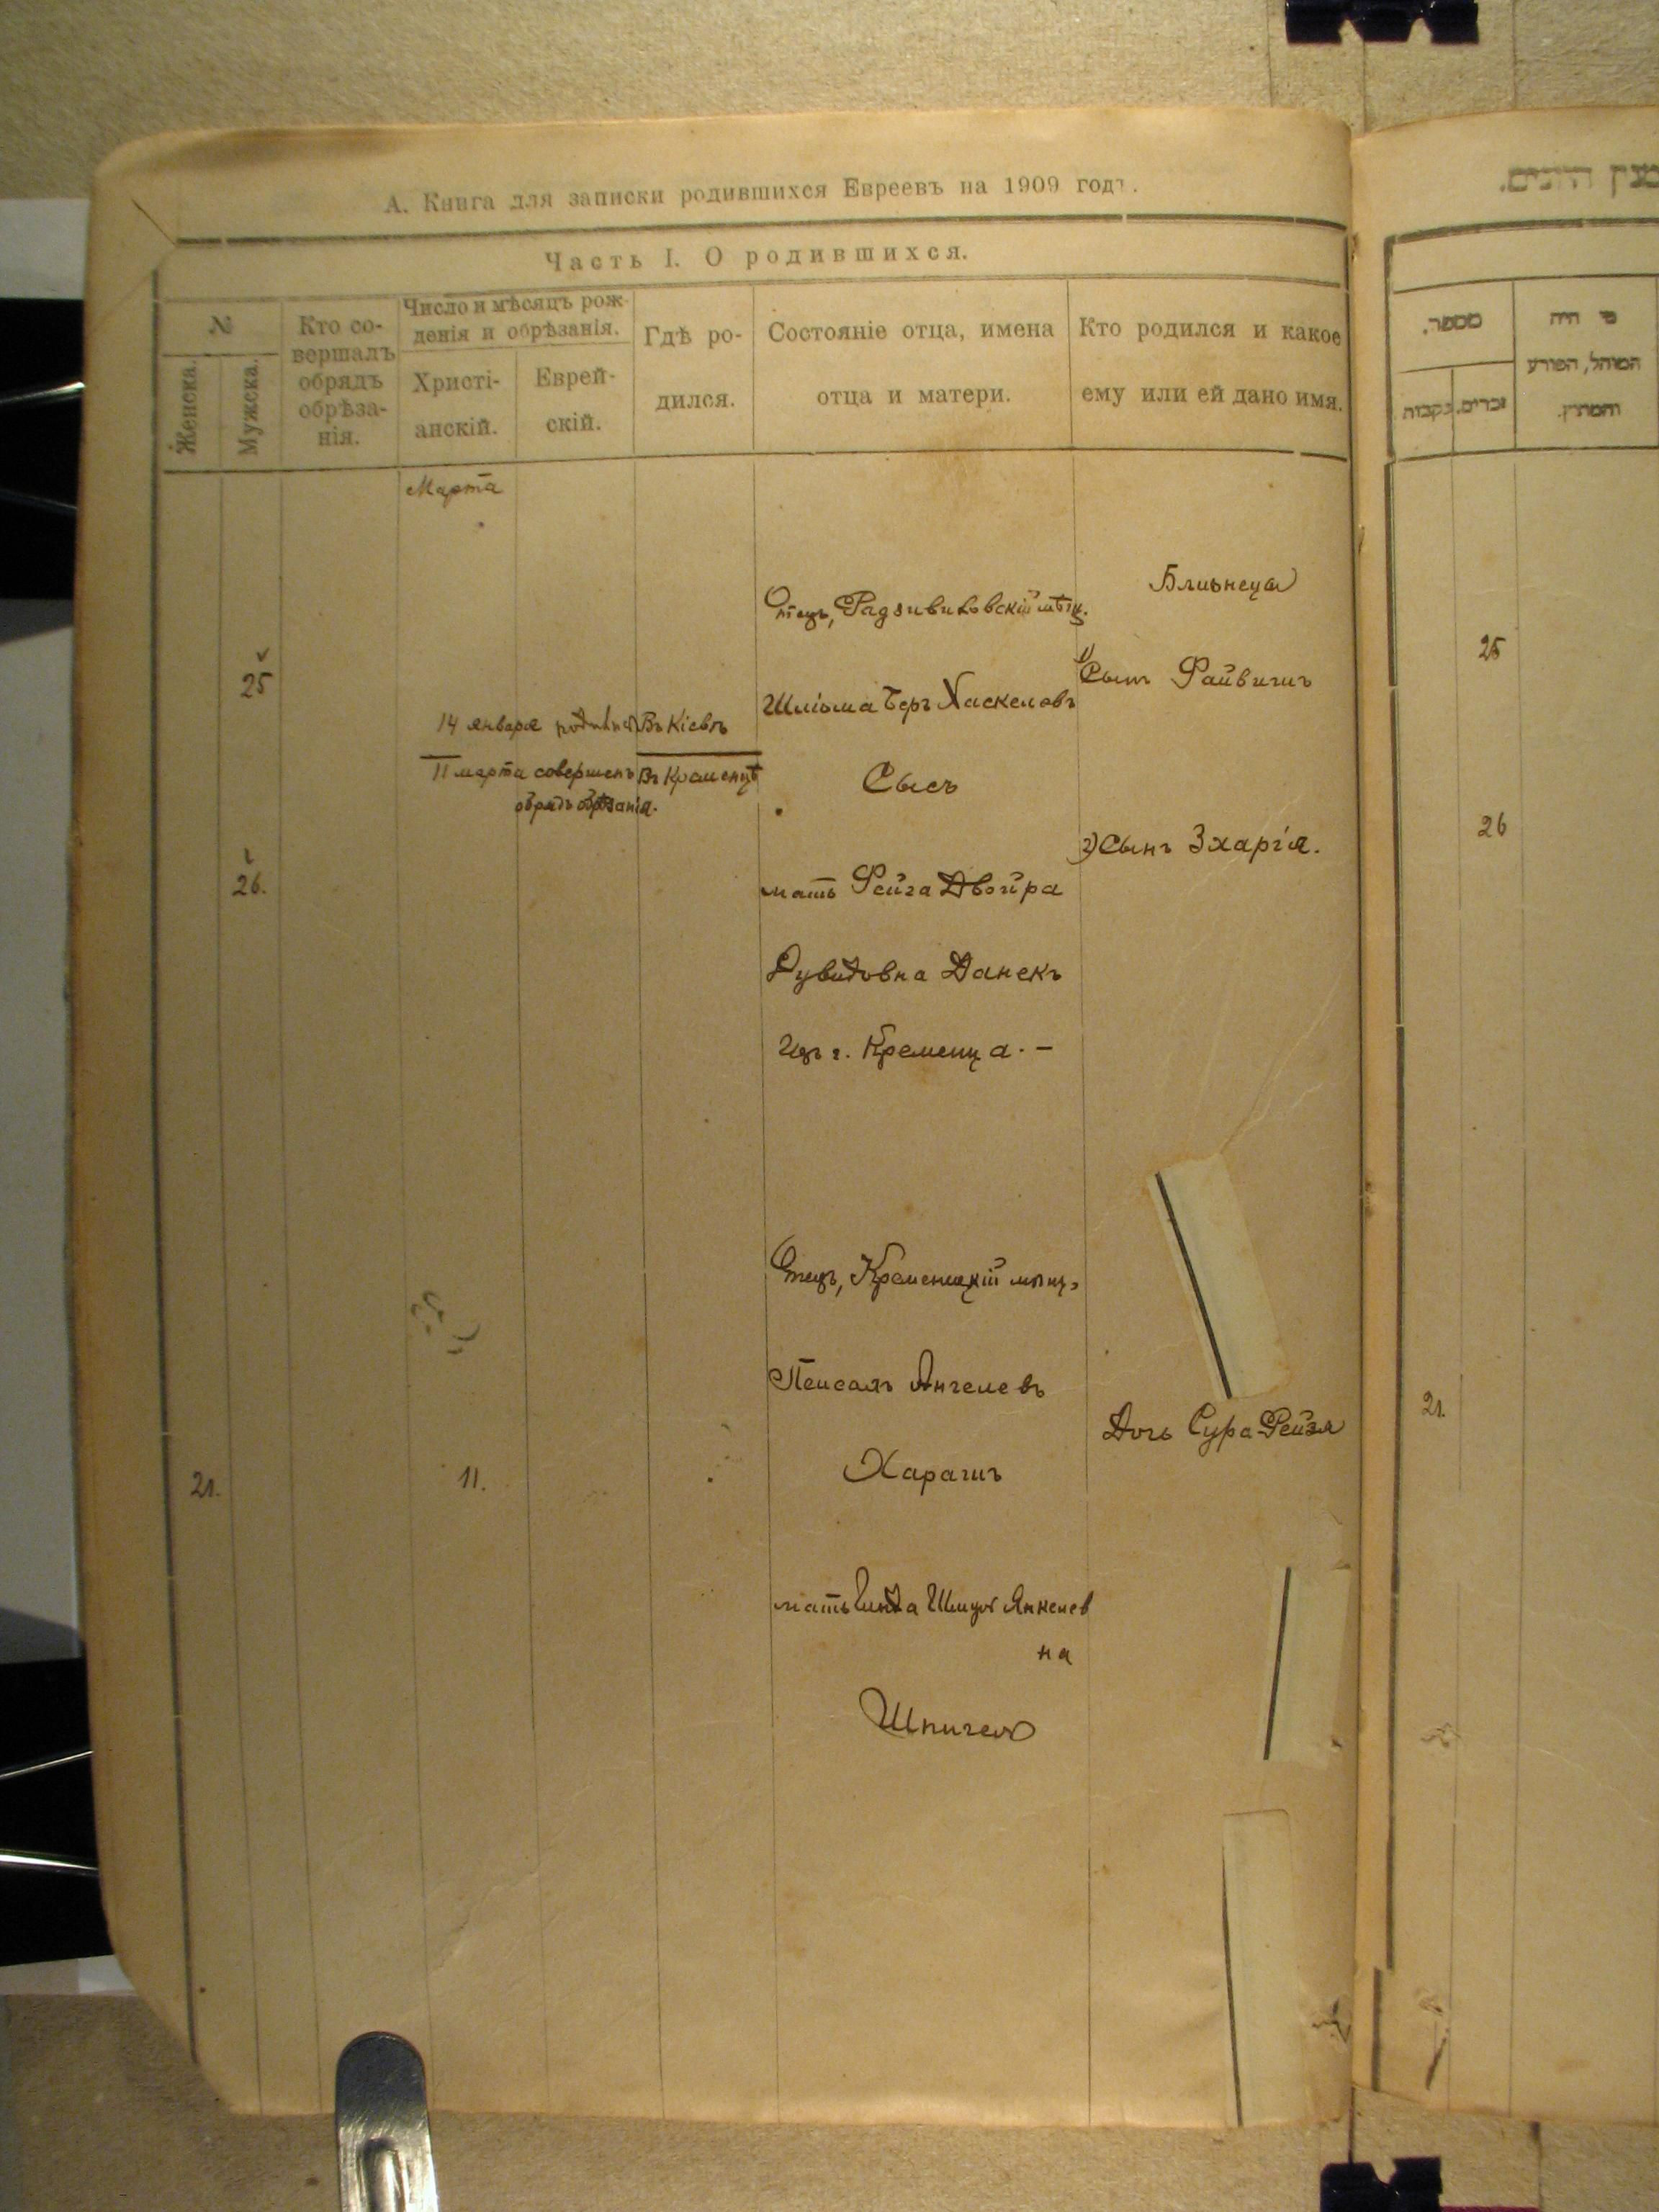 А. Книга для записки родившихся Евреевъ на 1909 годъ.
Часть I. О родившихся.
№
Женска.
Мужска.
Кто со-
вершалъ
обрядъ
обрѣза-
нія.
Число и мѣсяцъ рож-
денія и обрѣзанія.
Христі-
анскій.
Еврей-
скій.
Гдѣ ро-
дился.
Состояніе отца, имена
отца и матери.
Кто родился и какое
ему или ей дано имя.
Марта
25
26.
14 января родились Въ Кіевѣ
11 марта совершенъ Въ Кременцѣ
обрядъ обрѣзанія.
Отецъ, Радзивиловскій мѣщ.
Шліома Беръ Хаскелевъ
Сысъ
мать Фейга Двойра
Рувидовна Данекъ
Изъ г. Кременца. —
Близнецы
1) Сынъ Файвишъ
2) Сынъ Зхарія.
21.
11.
Отецъ, Кременецкій мѣщ.
Пейсахъ Янкелевъ
Харашъ
мать Янкелев
на
Шпигель
Дочь Сура-Рейзя
מספר.
זכרים.
נקבות
מי היה
המוהל, הפורע
והמוצץ.
25
26
21.